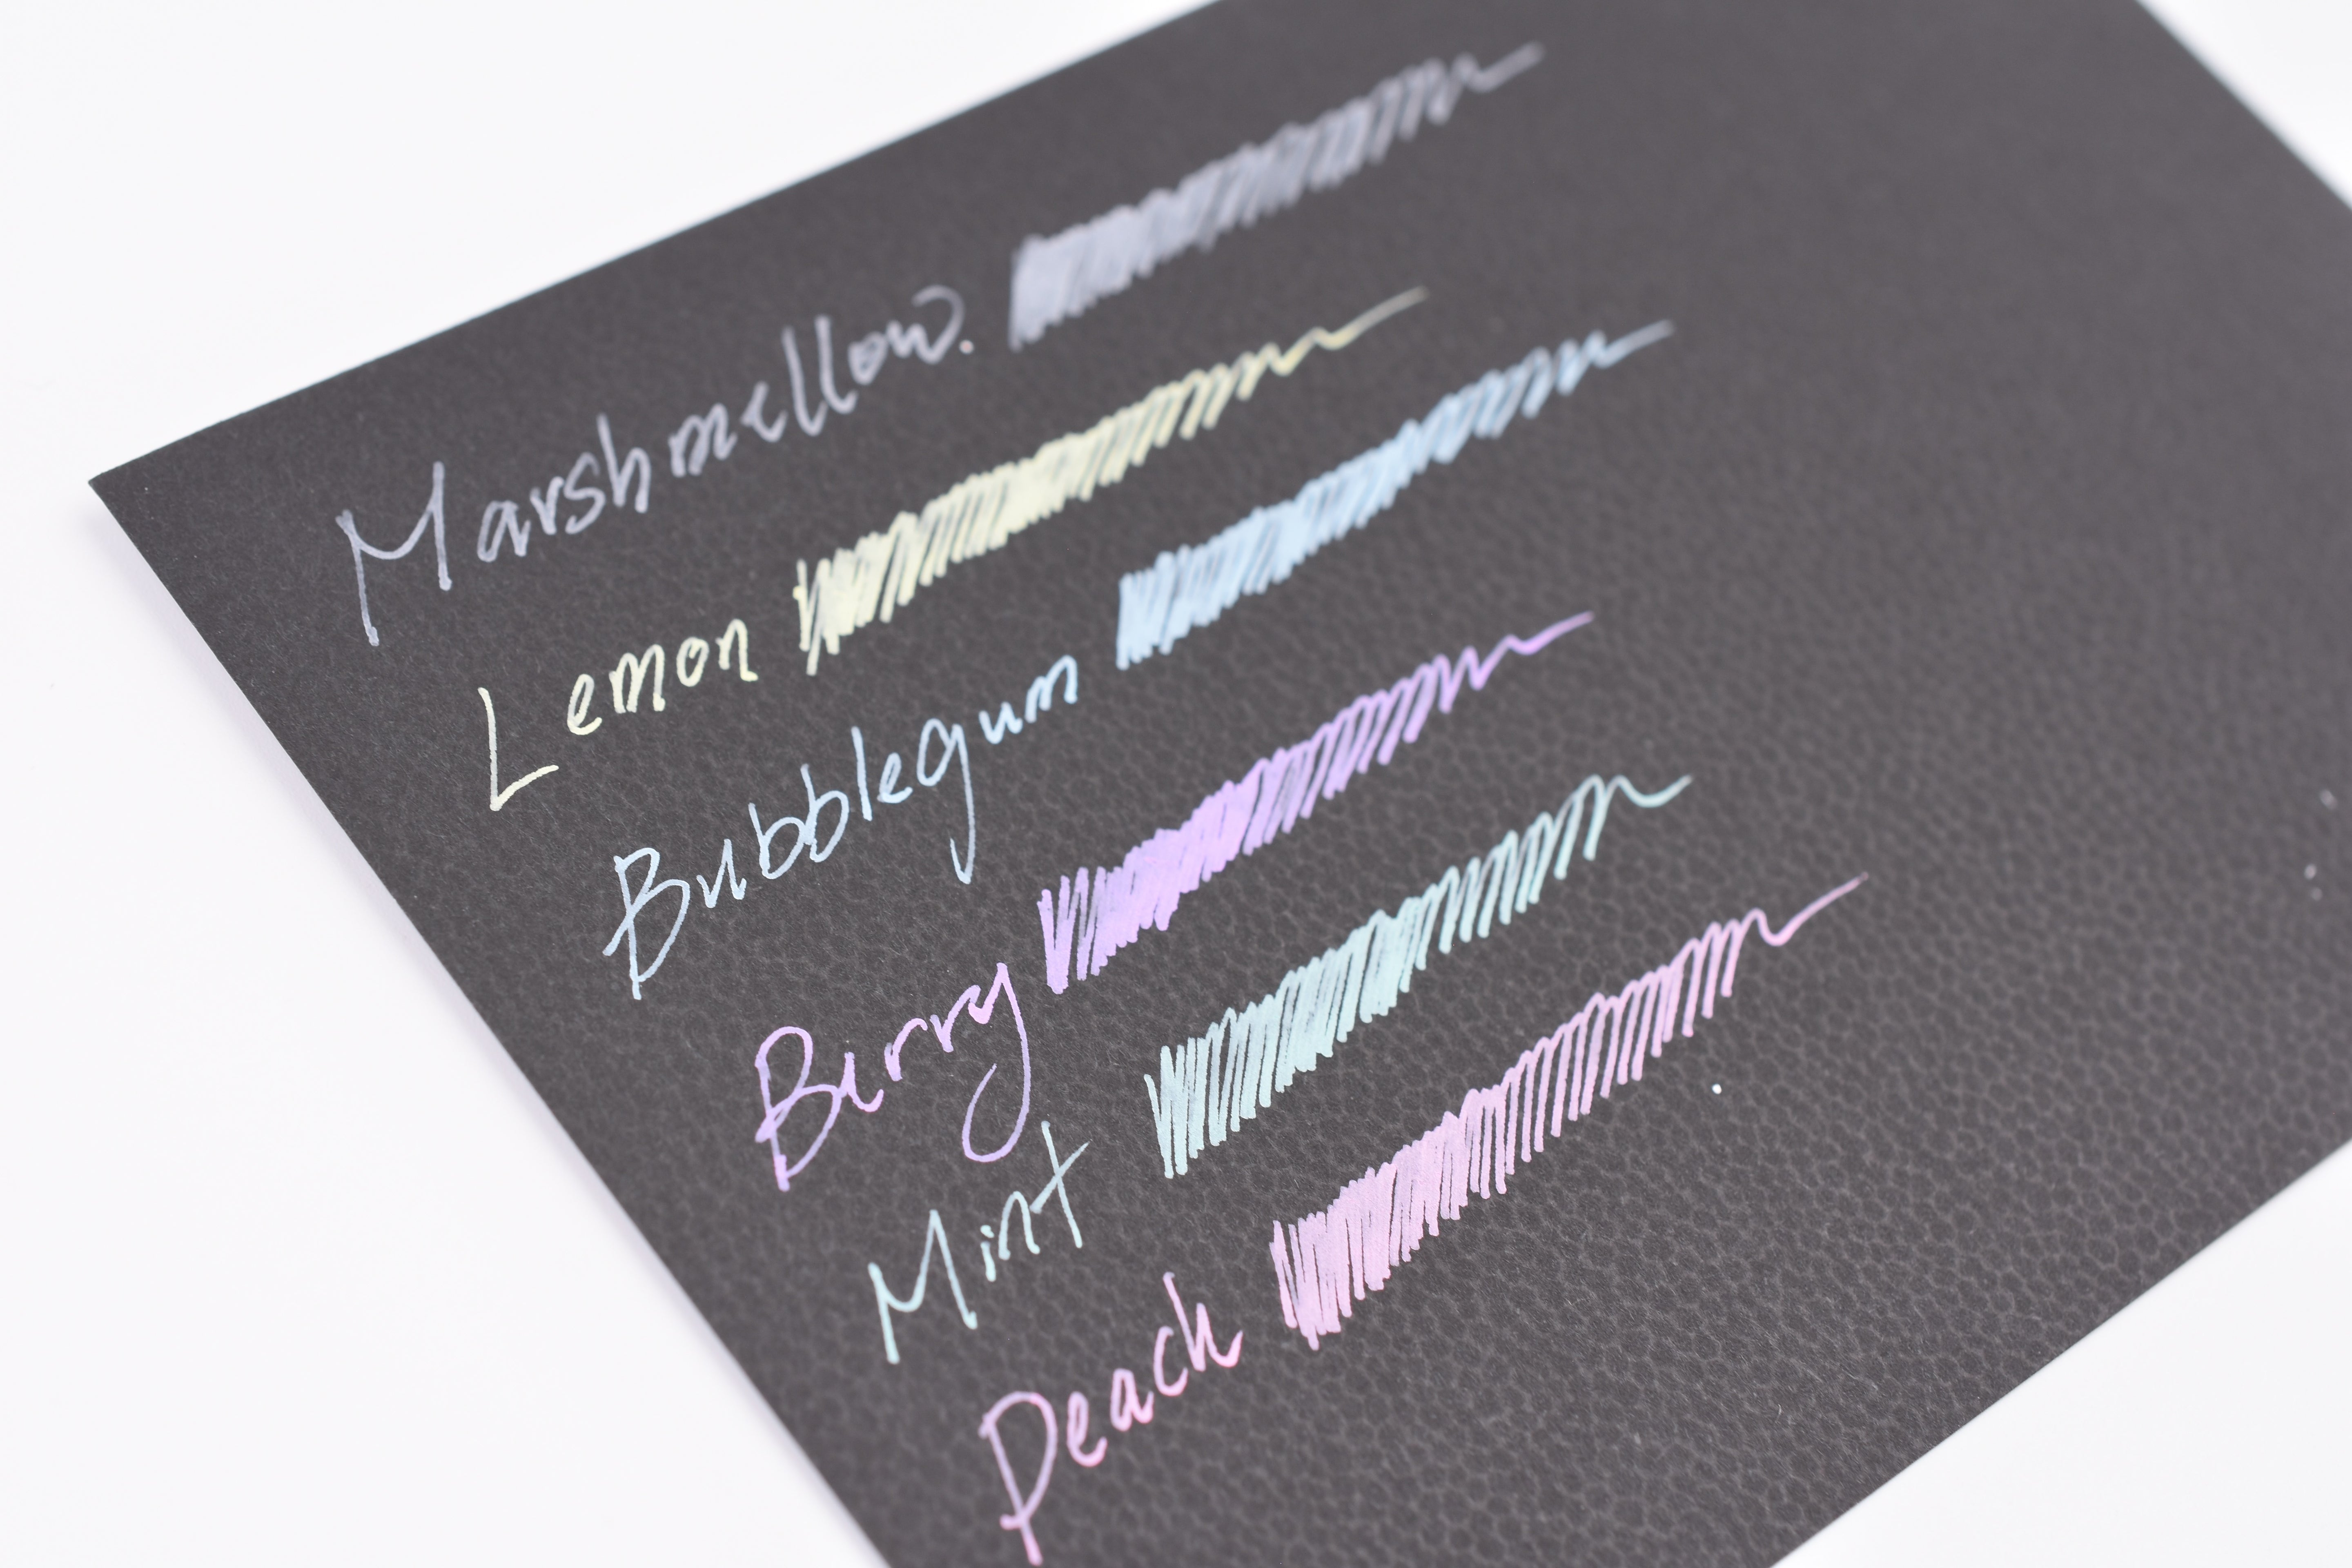 Marshmellow.
Lemon
Bubblegum
Berry
Mint
Peach